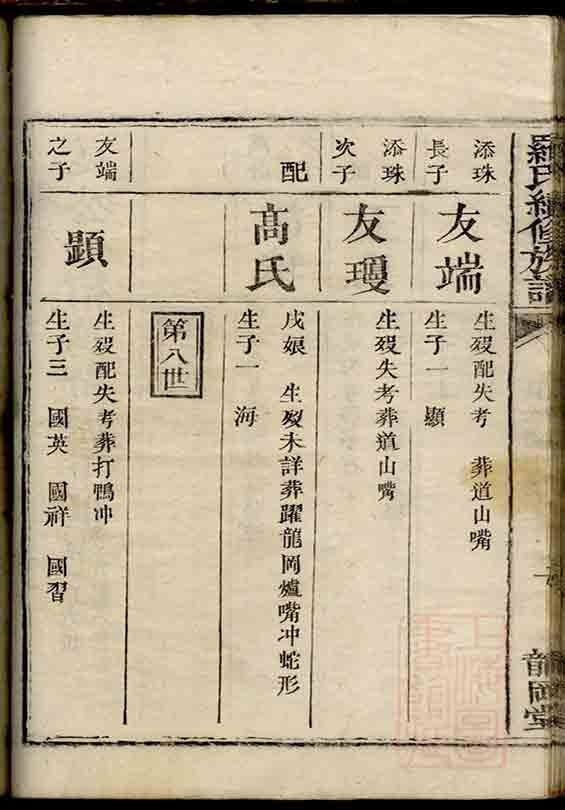 羅氏續修族譜
龍岡堂
添珠
長子
友端
生殁配失考 葬道山嘴
生子一 顯
添珠
次子
友璦
生殁失考葬道山嘴
配
高氏
戌娘 生殁未詳葬躍龍岡爐嘴冲蛇形
生子一 海
第八世
友端
之子
顕
生殁配失考葬打鴨冲
生子三 國英 國祥 國習